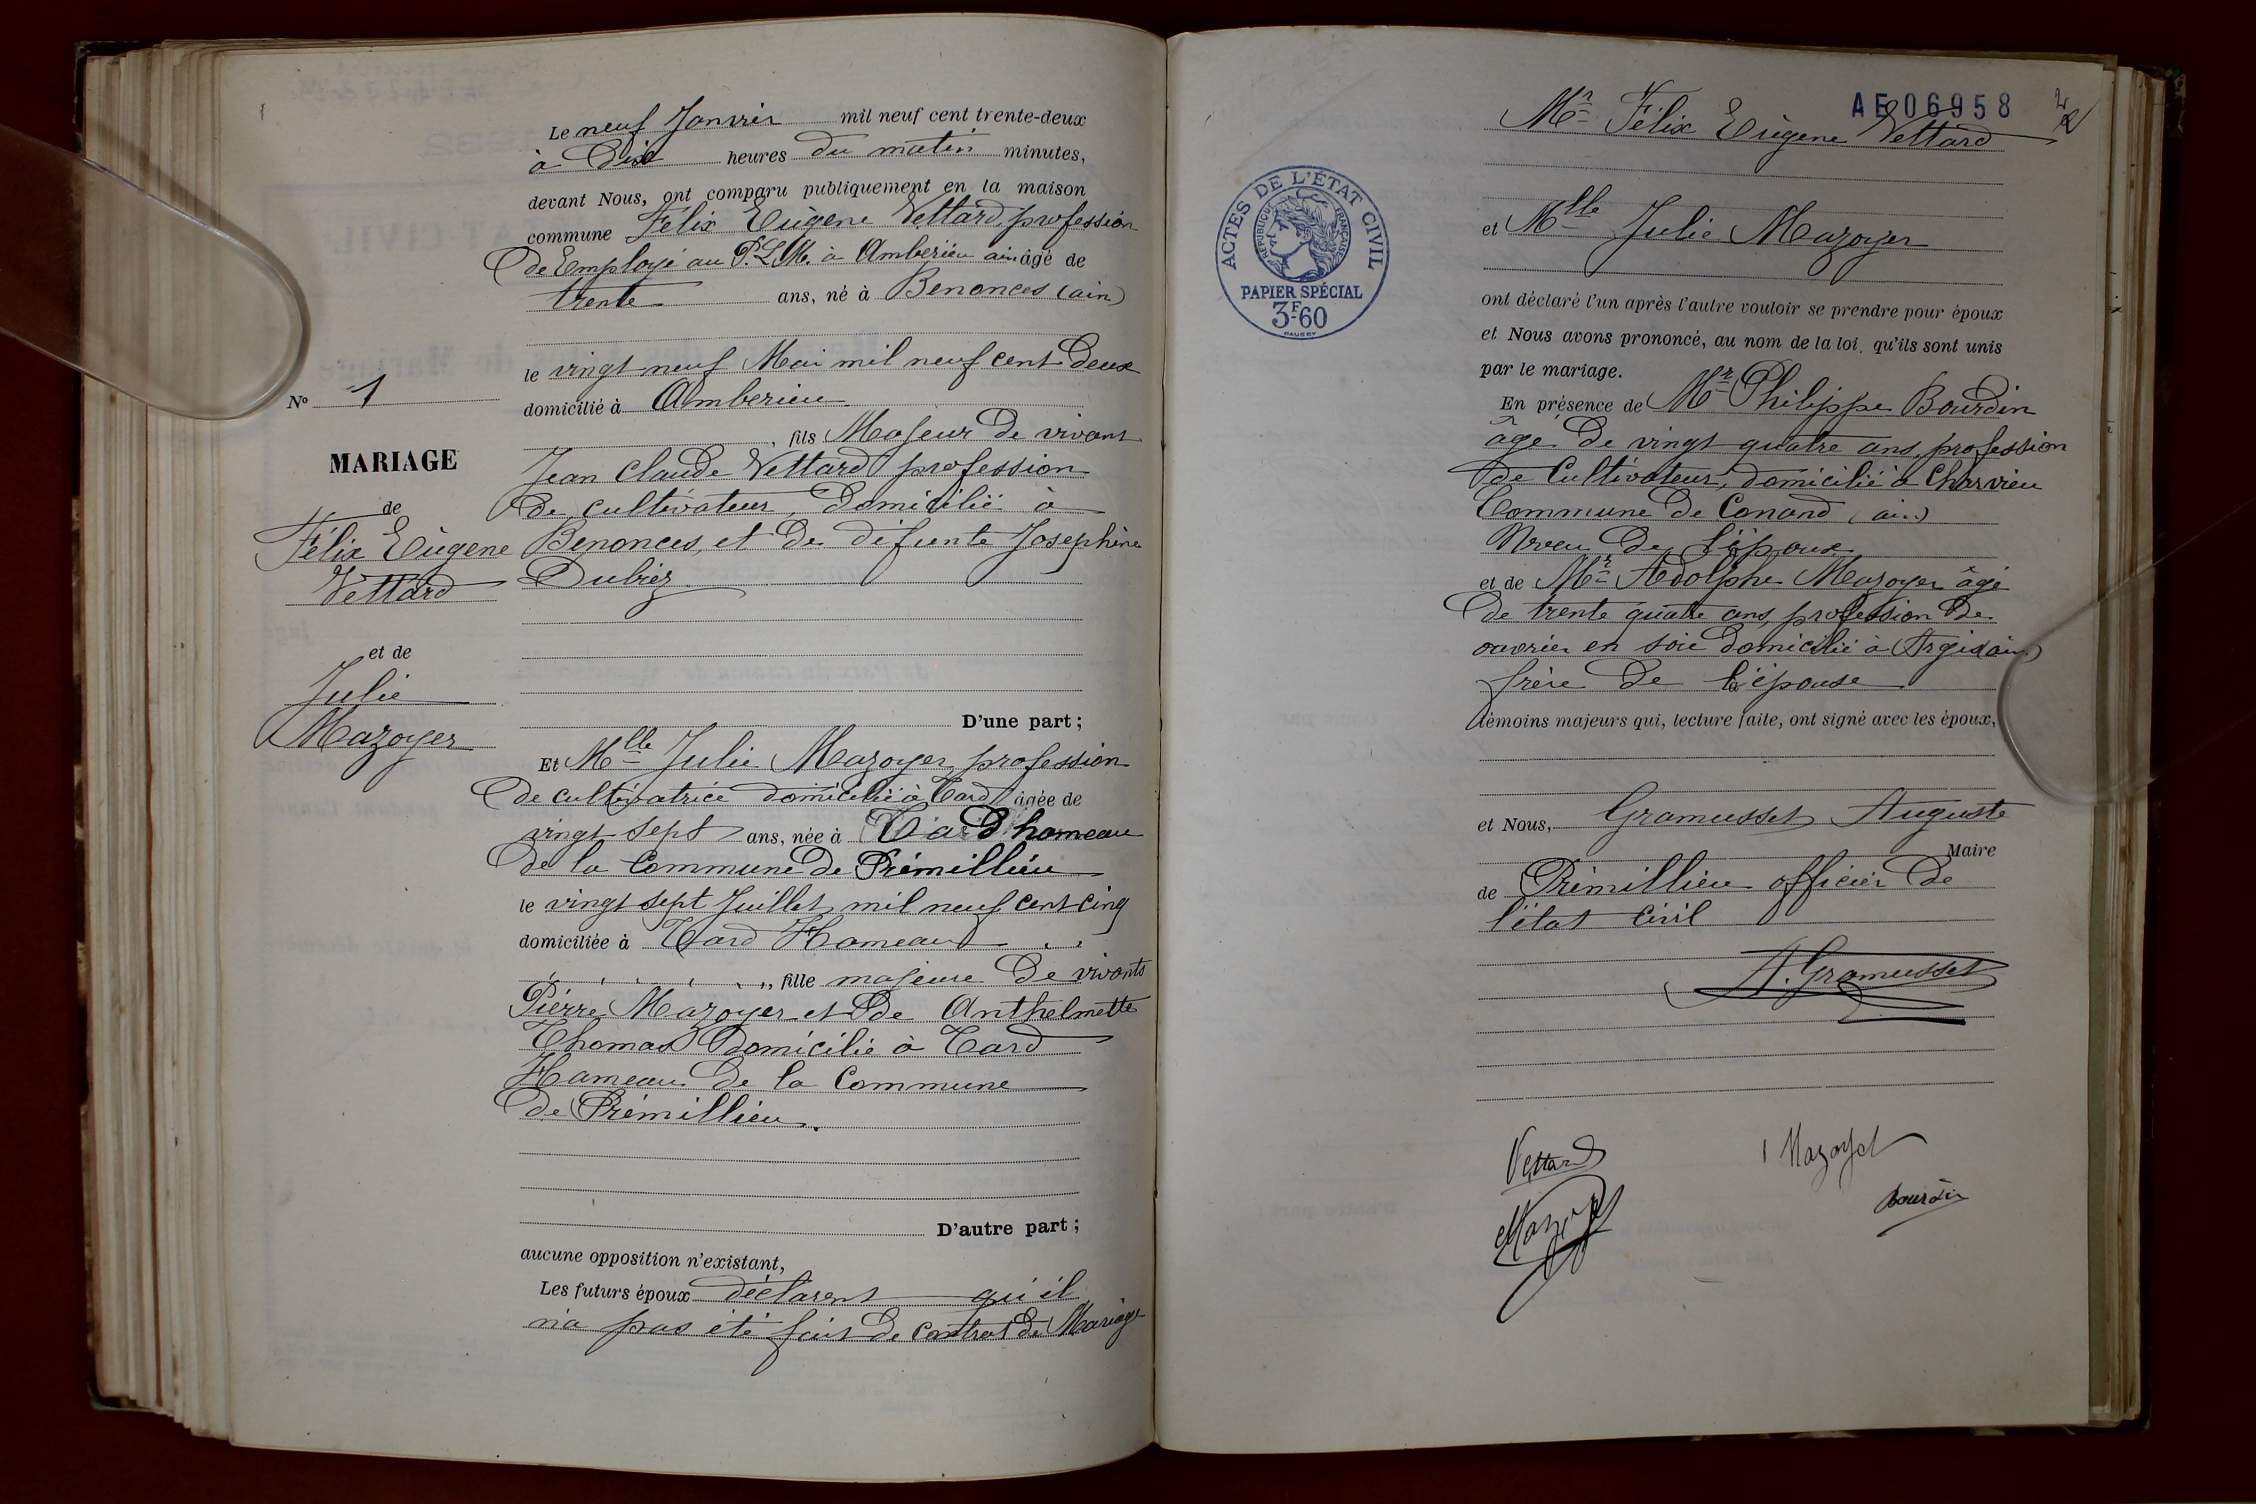 Le neuf Janvier mil neuf cent trente-deux
à Dix heures du matin minutes,
devant Nous, ont comparu publiquement en la maison
commune Félix Eugène Vettard, profession
de Employé au P.L.M. à Amberieu ain âgé de
trente ans, né à Benonces (ain)
le vingt neuf Mai mil neuf cent deux
domicilié à Amberieu
, fils Majeur de vivant
Jean Claude Vettard profession
de cultivateur, domicilié à
Benonces, et de défunte Joséphine
Dubiez
D'une part;
N° 1
MARIAGE
de
Félix Eugène
Vettard
et de
Julie
Mazoyer
Et Mlle Julie Mazoyer, profession
de cultivatrice domicilié à Tard âgée de
vingt sept ans, née à Tard hameau
de la Commune de Prémillieu
le vingt sept Juillet mil neuf cent cinq
domiciliée à Tard Hameau
, fille majeure de vivants
Pierre Mazoyer et de Anthelmette
Thomas domicilié à Tard
Hameau de la Commune
de Prémillieu.
D'autre part;
aucune opposition n'existant,
Les futurs époux déclarent qu'il
n'a pas été fait de contrat de Mariage
AE 06958
2
Mr Félix Eugène Vettard
ACTES DE L'ÉTAT CIVIL
RÉPUBLIQUE FRANÇAISE
PAPIER SPÉCIAL
3F-60
et Mlle Julie Mazoyer
ont déclaré l'un après l'autre vouloir se prendre pour époux
et Nous avons prononcé, au nom de la loi, qu'ils sont unis
par le mariage.
En présence de Mr Philippe Bourdin
âgé de vingt quatre ans, profession
de Cultivateur, domicilié à Charvieu
Commune de Conand (ain)
Neveu de l'époux
et de Mr Adolphe Mazoyer âgé
de trente quatre ans, profession de
ouvrier en soie domicilié à Argis (ain)
frère de l'épouse
témoins majeurs qui, lecture faite, ont signé avec les époux,
et Nous, Gramusset Auguste
Maire
de Prémillieu officier de
l'état civil
A. Gramusset
Vettard
J Mazoyer
Mazoyer
Bourdin